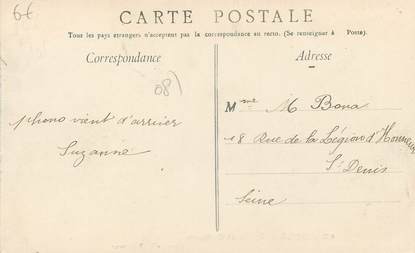 6f
CARTE POSTALE
Tous les pays étrangers n'acceptent pas la correspondance au recto. (Se renseigner à Poste).
Correspondance
Adresse
08)
phono vient d'arriver
Suzanne
Mme M Bona
18 Rue de la Légion d'Honneur
St Denis
Seine